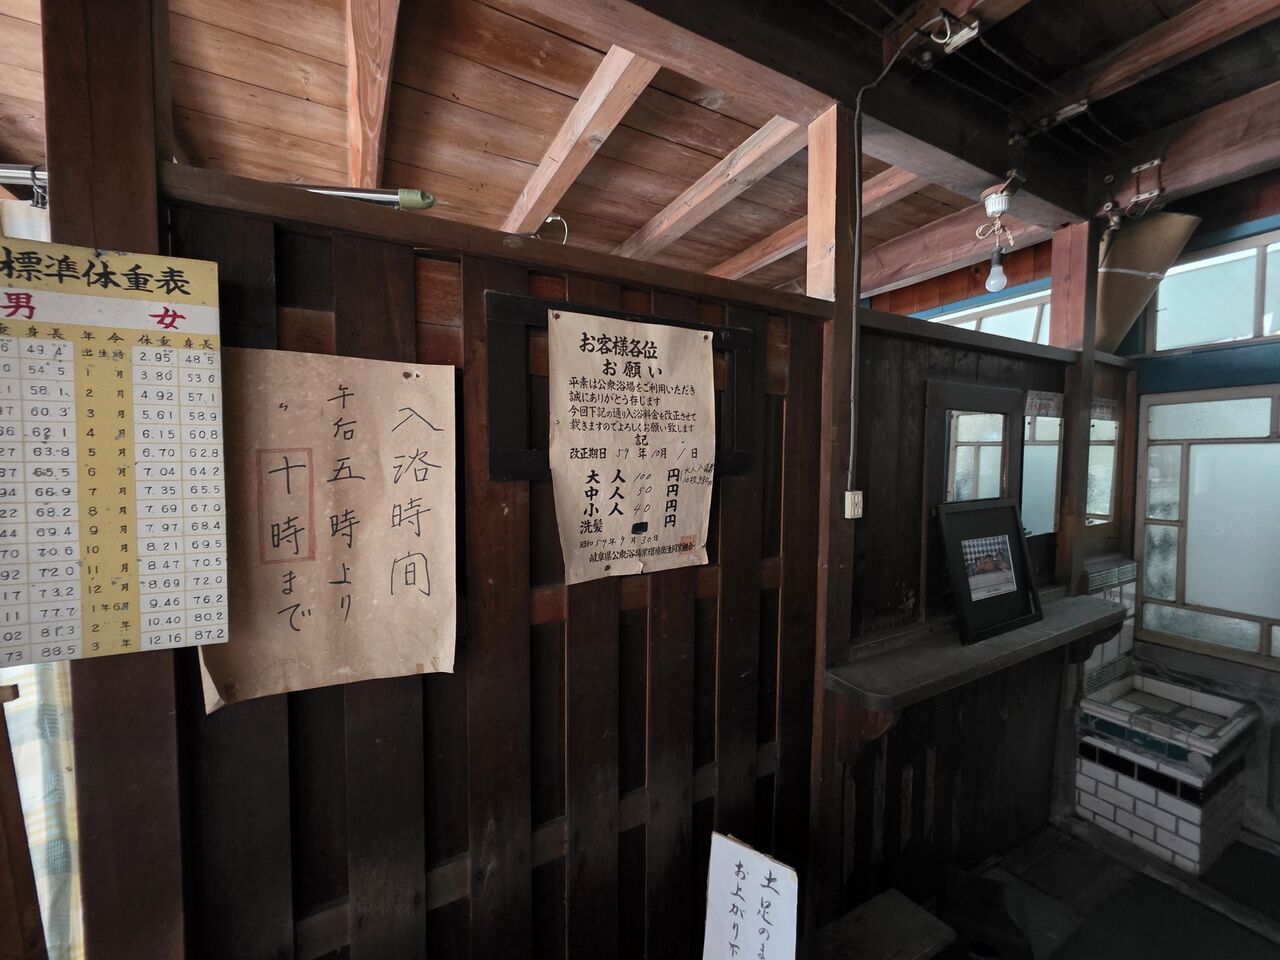 標準体重表
男 女
身長 年令 体重 身長
49.4 出生時 2.95 48.5
54.5 1月 3.80 53.6
58.1 2月 4.92 57.1
60.3 3月 5.61 58.9
62.1 4月 6.15 60.8
63.8 5月 6.70 62.8
65.5 6月 7.04 64.2
66.9 7月 7.35 65.5
68.2 8月 7.69 67.0
69.4 9月 7.97 68.4
70.6 10月 8.21 69.5
72.0 11月 8.47 70.5
73.2 12月 8.69 72.0
77.7 1年6月 9.46 76.2
81.3 2年 10.40 80.2
88.5 3年 12.16 87.2
入浴時間
午后五時より
〃十時まで
お客様各位
お願い
平素は公衆浴場をご利用いただき
誠にありがとう存じます
今回下記の通り入浴料金を改正させて
載きますのでよろしくお願い致します
記
改正期日 59年10月1日
大人 100円
中人 50円
小人 40円
洗髪 円
昭和59年9月30日
岐阜県公衆浴場業環境衛生同業組合
土足のま
お上がり下